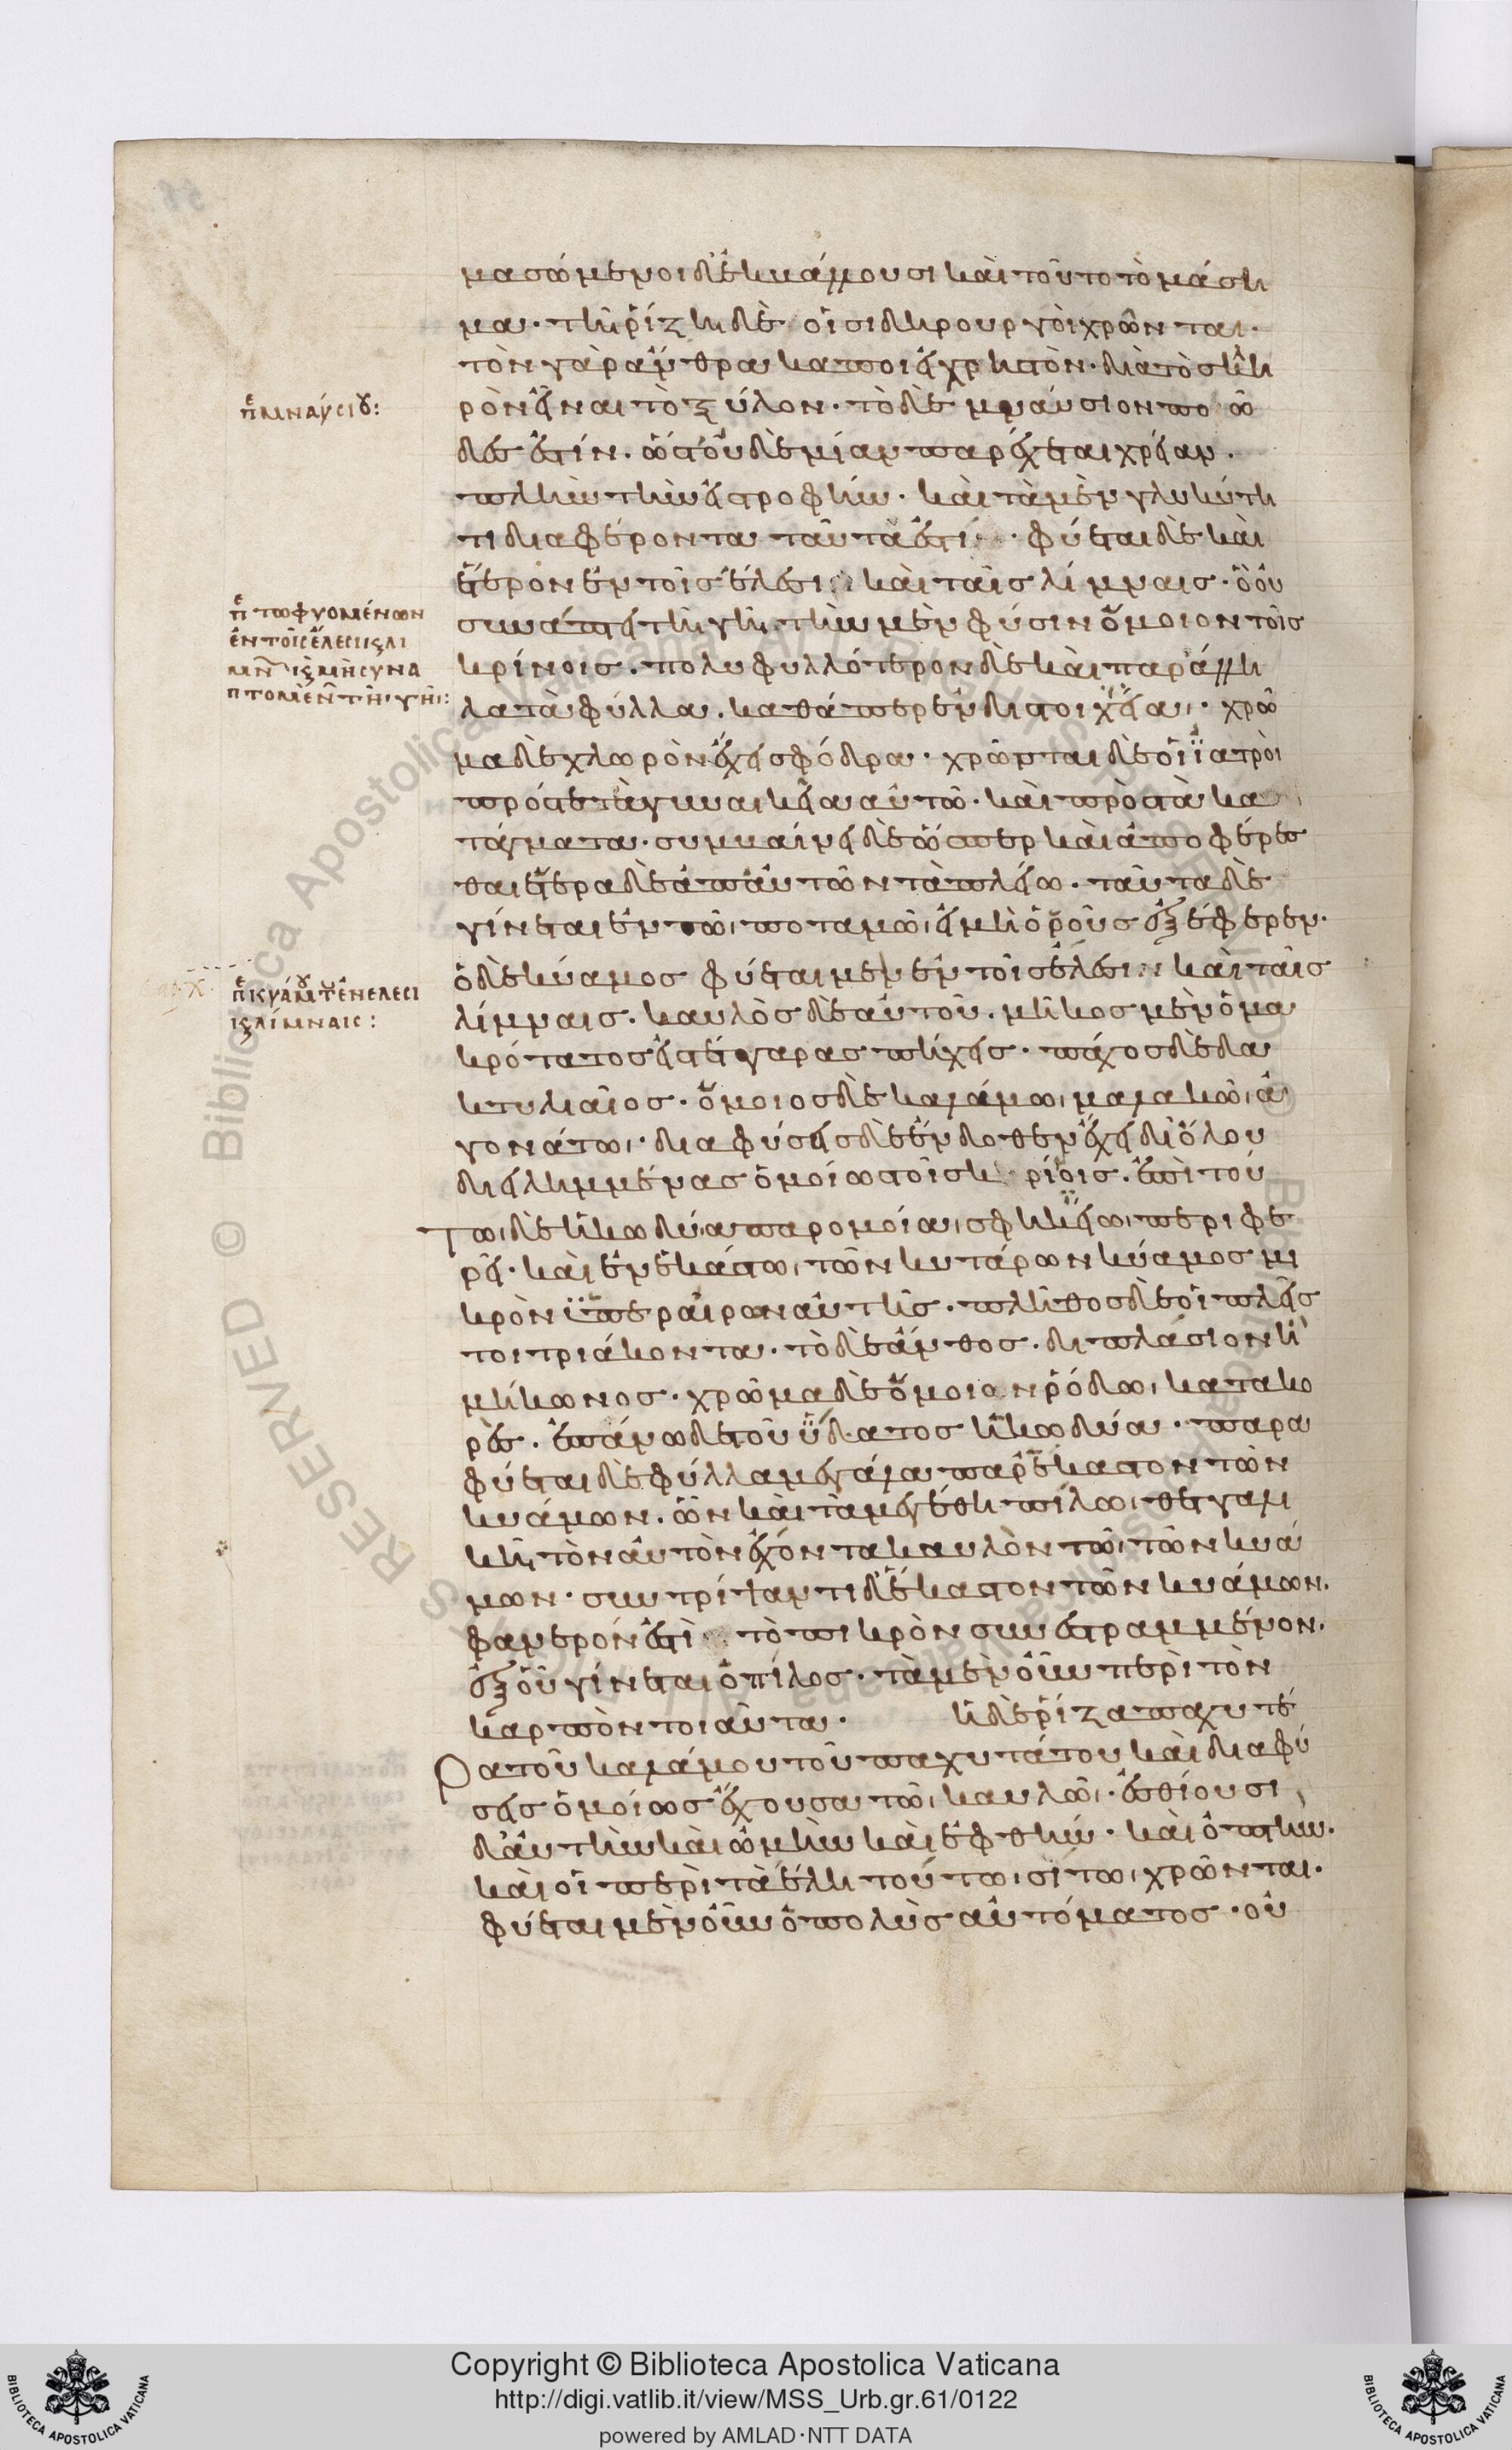 μασώμενοι δ' ἐκβάλλουσι καὶ τοῦτο τὸ μάση
μα· τῆ ῥίζη δὲ οἱ σιδηρουργοὶ χρῶνται·
τὸν γὰρ ἄνθρακα ποιεῖ χρηστὸν· διὰ τὸ σκλη
ρὸν εἶναι τὸ ξύλον· τὸ δὲ μναύσιον ποῶ
π μναυσίου:
δες ἐστίν. ὥστ' οὐδεμίαν παρέχεται χρείαν.
πλὴν τὴν εἰς τροφήν· καὶ τὰ μὲν γλυκύτη
τι διαφέροντα ταῦτά ἐστι· φύεται δὲ καὶ
ἕτερον ἐν τοῖς ἕλεσι καὶ ταῖς λίμναις· ὃ οὐ
π τῶ φυομένων
ἐν τοῖς ἕλεσι κ λι
μν κ μὴ συνα
πτομεν τῆ γῆ:
συνάπτει τῆ γῆ. τὴν μὲν φύσιν ὅμοιον τοῖς
κρίνοις. πολυφυλλότερον δὲ καὶ παράλλη
λα τὰ φύλλα. καθάπερ ἐν διστοιχεία· χρῶ
μα δὲ χλωρὸν ἔχει σφόδρα· χρῶνται δὲ οἱ ϊατροὶ
πρός τε τὰ γυναικεῖα αὐτῶ· καὶ πρὸς τὰ κα
τάγματα· συμβαίνει δὲ ὥσπερ καὶ ἀποφέρεσ
θαι ἕτερα δὲ ἀπ' αὐτῶν τὰ πλείω. ταῦτα δὲ
γίνεται ἐν τῶ ποταμῶ εἰ μὴ ὁ ῥοῦς ἐξέφερεν·
ὁ δὲ κύαμος φύεται μὲν ἐν τοῖς ἕλεσι καὶ ταῖς
π κυάμου τ ἐν ελεσι
κ λίμναις:
λίμναις. καυλὸς δὲ αὐτοῦ. μῆκος μὲν ὁ μα
κρότατος εἰς τέτταρας πήχεις· πάχος δὲ δα
κτυλιαῖος· ὅμοιος δὲ καλάμω μαλακῶ ἀ
γονάτω· διαφύσεις δὲ ἔνδοθεν ἔχει δι' ὅλου
διειλημμένας ὁμοίως τοῖς κηρίοις. ἐπὶ τού
τω δὲ ἡ κωδύα παρομοία σφηκείω περιφε
ρεῖ· καὶ ἐν ἑκάστω τῶν κυτάρων κύαμος μι
κρὸν ὑπεραίρων αὐτῆς· πλῆθος δὲ οἱ πλεῖς
τοι τριάκοντα· τὸ δὲ ἄνθος. διπλάσιον ἢ
μήκωνος· χρῶμα δὲ ὅμοιον ῥόδω κατακο
ρές. ἐπάνω δὲ τοῦ ὕδατος ἡ κωδύα· παρα
φύεται δὲ φύλλα μεγάλα παρ' ἕκαστον τῶν
κυάμων. ὧν καὶ τὰ μεγέθη πίλω θετταλι
κῆ τὸν αὐτὸν ἔχοντα καυλὸν τῶ τῶν κυά
μων· συντρίψαντι δ' ἕκαστον τῶν κυάμων.
φανερόν ἐστι τὸ πικρὸν συνεστραμμένον.
ἐξ οὗ γίνεται ὁ πίλος· τὰ μὲν οὖν περὶ τὸν
καρπὸν τοιαῦτα· ἡ δὲ ῥίζα παχυτέ
ρα τοῦ καλάμου τοῦ παχυτάτου καὶ διαφύ
σεις ὁμοίως ἔχουσα τῶ καυλῶ· ἐσθίουσι
δ' αὐτὴν καὶ ὠμὴν καὶ ἑφθήν· καὶ ὀπτήν.
καὶ οἱ περὶ τὰ ἕλη τούτω σίτω χρῶνται.
φύεται μὲν οὖν ὁ πολὺς αὐτόματος· οὐ
BIBLIOTECA APOSTOLICA VATICANA
Copyright © Biblioteca Apostolica Vaticana
http://digi.vatlib.it/view/MSS_Urb.gr.61/0122
powered by AMLAD·NTT DATA
BIBLIOTECA APOSTOLICA VATICANA